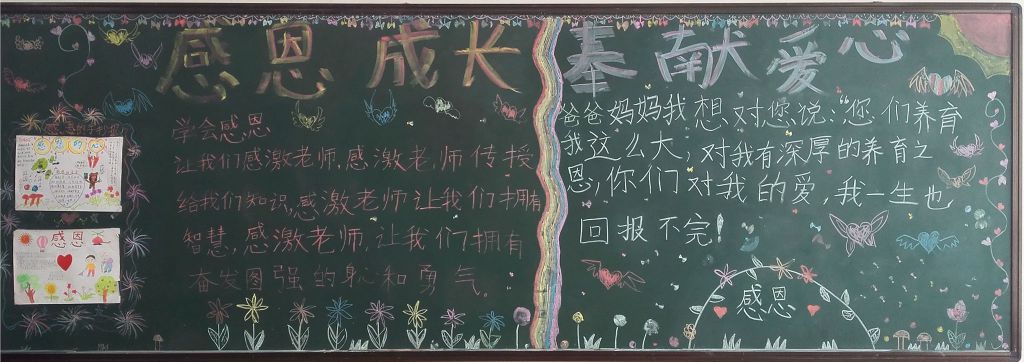 感恩 成长 奉献爱心
学会感恩
让我们感激老师,感激老师传授
给我们知识,感激老师让我们拥有
智慧,感激老师,让我们拥有
奋发图强的心和勇气。
爸爸妈妈我想对您说:“您们养育
我这么大,对我有深厚的养育之
恩,你们对我的爱,我一生也
回报不完!
感恩
感恩的心
感恩